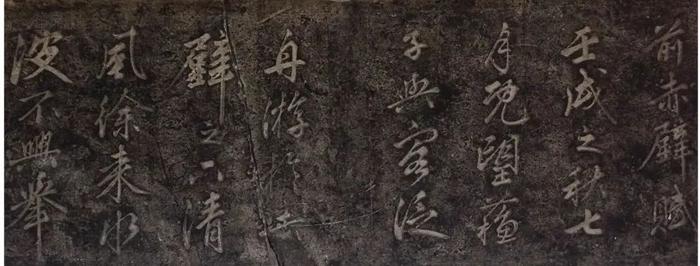 前赤壁賦
壬戌之秋七
月既望蘇
子與客泛
舟游於
壁之下清
風徐来水
波不興舉